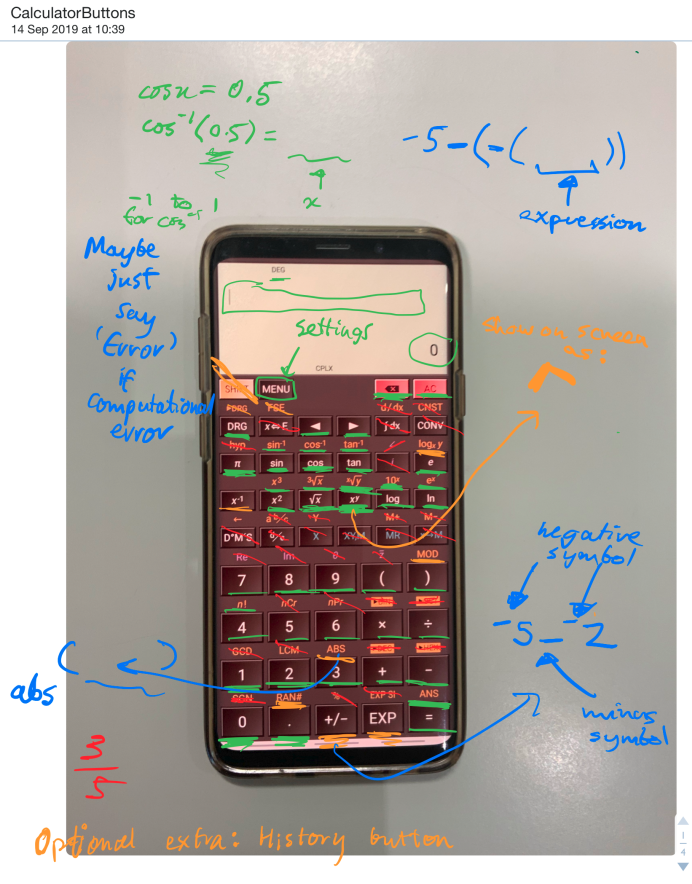 CalculatorButtons
14 Sep 2019 at 10:39
cos x = 0.5
cos⁻¹(0.5) =
x
-1 to 1
for cos⁻¹
-5-(-( ))
expression
Maybe
just
say
'Error)
if
computational
error
DEG
settings
0
CPLX
Show on screen
as:
^
SHIFT MENU AC
▸DRG FSE d/dx CNST
DRG x⇔E ◀ ▶ ∫dx CONV
hyp sin⁻¹ cos⁻¹ tan⁻¹ logₓy
π sin cos tan i e
x³ ³√x ˣ√y 10ˣ eˣ
x⁻¹ x² √x xʸ log ln
← a b/c Y M+ M-
D°M'S a/c X XY,M MR →M
Re Im θ z̄ MOD
7 8 9 ( )
n! nCr nPr
4 5 6 × ÷
GCD LCM ABS
1 2 3 + −
CGN RAN# % EXP SI ANS
0 . +/− EXP =
negative
symbol
⁻5 − ⁻2
minus
symbol
( )
abs
3
5
Optional extra: History button
1
4